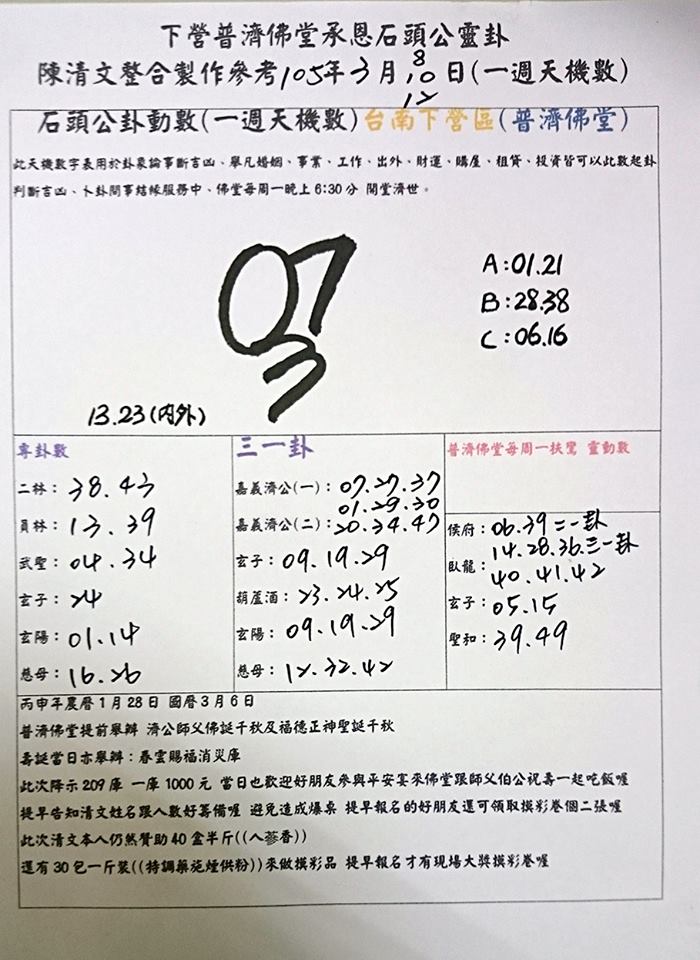 下營普濟佛堂承恩石頭公靈卦
陳清文整合製作參考105年3月8.10.12日(一週天機數)
石頭公卦動數(一週天機數)台南下營區(普濟佛堂)
此天機數字表用於卦象論事斷吉凶、舉凡婚姻、事業、工作、出外、財運、購屋、租貸、投資皆可以此數起卦
判斷吉凶、卜卦問事結緣服務中、佛堂每周一晚上6:30分 開堂濟世。
07
3
A:01.21
B:28.38
C:06.16
13.23(内外)
專卦數
二林: 38.43
員林: 13.39
武聖: 04.34
玄子: 24
玄陽: 01.14
慈母: 16.26
三一卦
嘉義濟公(一): 07.27.37
嘉義濟公(二): 01.29.30
20.34.47
玄子: 09.19.29
葫蘆酒: 23.24.25
玄陽: 09.19.29
慈母: 12.32.42
普濟佛堂每周一扶鸞 靈動數
侯府: 06.39 二一卦
臥龍: 14.28.36.三一卦
40.41.42
玄子: 05.15
聖和: 39.49
丙申年農曆1月28日 國曆3月6日
普濟佛堂提前舉辦 濟公師父佛誕千秋及福德正神聖誕千秋
壽誕當日亦舉辦:春雲賜福消災庫
此次降示209庫 一庫1000元 當日也歡迎好朋友參與平安宴來佛堂跟師父伯公祝壽一起吃飯喔
提早告知清文姓名跟人數好籌備喔 避免造成爆桌 提早報名的好朋友還可領取摸彩卷個二張喔
此次清文本人仍然贊助40盒半斤((人蔘香))
還有30包一斤裝((特調藥施煙供粉))來做摸彩品 提早報名才有現場大獎摸彩卷喔